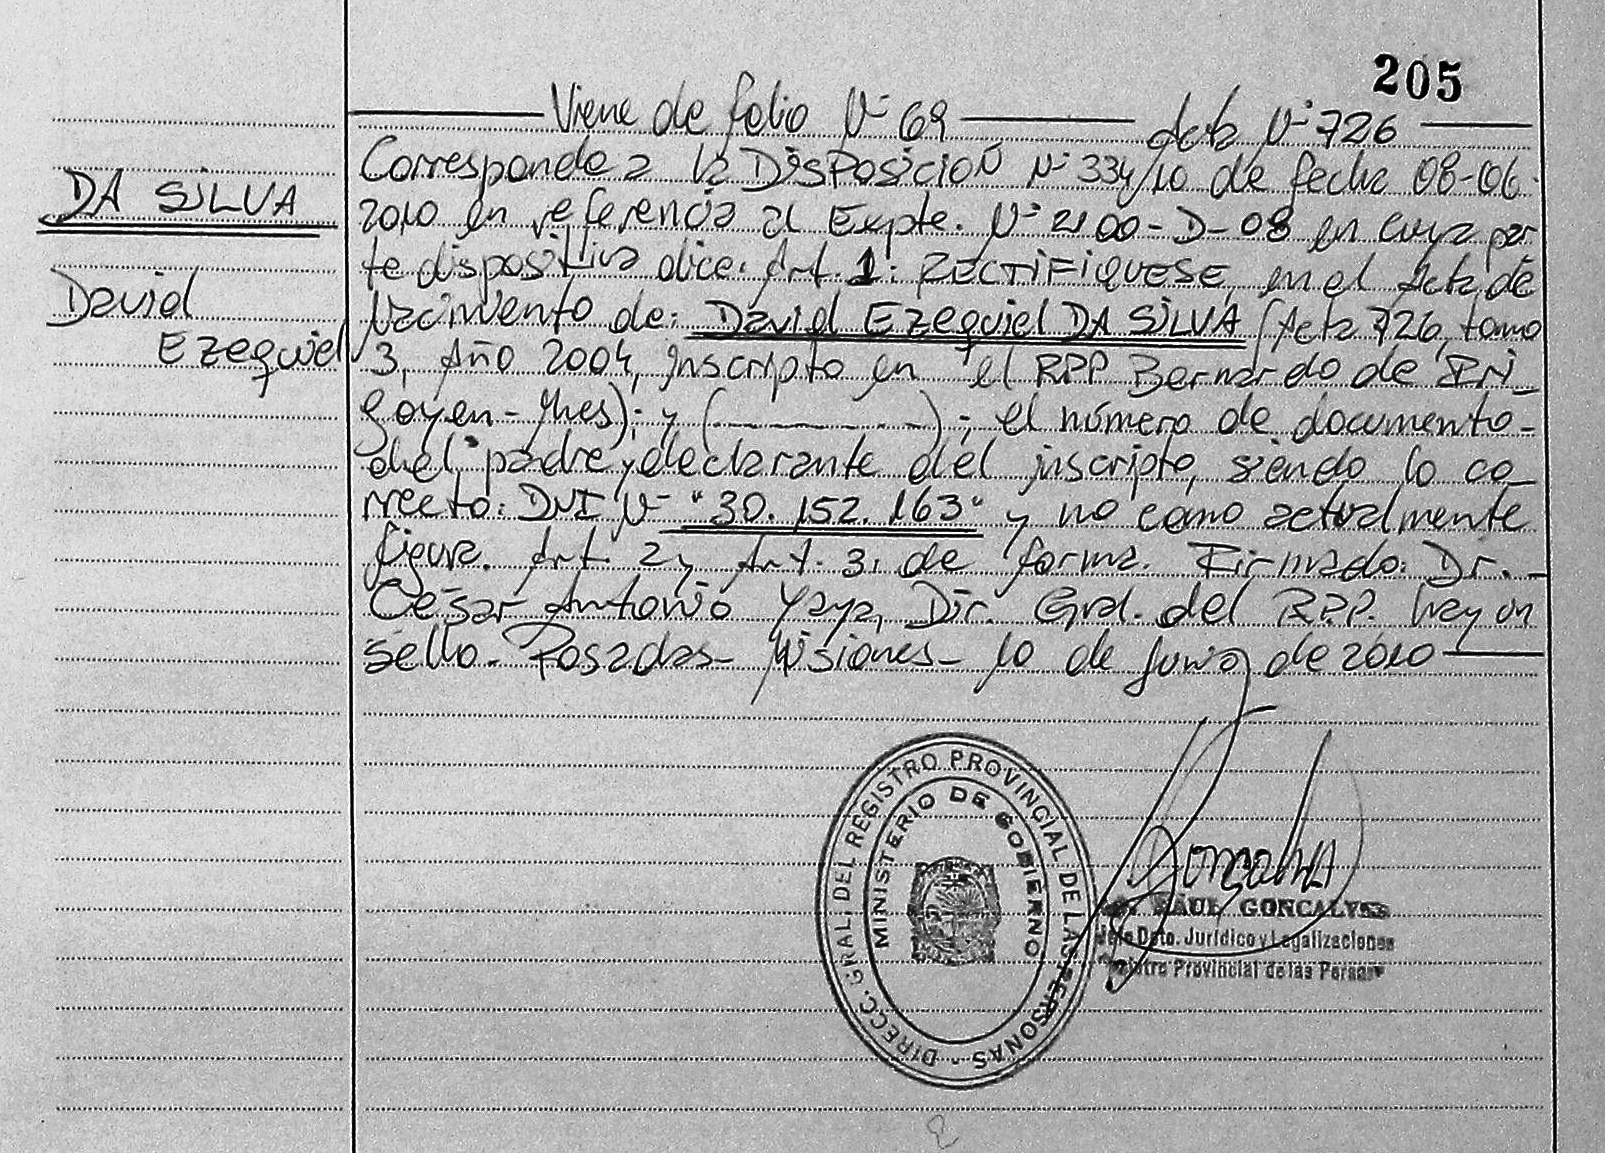 205
Viene de folio Nº 69 Acta Nº 726
DA SILVA
David
Ezequiel
Corresponde a la DISPOSICIÓN Nº 334/10 de fecha 08-06-
2010 en referencia al Expte. Nº 2100-D-08 en cuya par
te dispositiva dice: Art. 1: RECTIFIQUESE, en el Acta de
Nacimiento de: David Ezequiel DA SILVA (Acta 726, tomo
3, Año 2004, inscripto en el RPP Bernardo de Iri-
goyen-Mnes); y ( ); el número de documento-
del padre y declarante del inscripto, siendo lo co_
rrecto: DNI Nº "30.152.163" y no como actualmente
figura. Art. 2, Art. 3, de forma. Firmado: Dr. -
César Antonio Yaya, Dir. Gral. del R.P.P. hay un
sello. Posadas- Misiones- 10 de Junio de 2010
DIRECC. GRAL. DEL REGISTRO PROVINCIAL DE LAS PERSONAS -
MINISTERIO DE GOBIERNO
RAUL GONCALVES
Jefe Dpto. Jurídico y Legalizaciones
Registro Provincial de las Personas